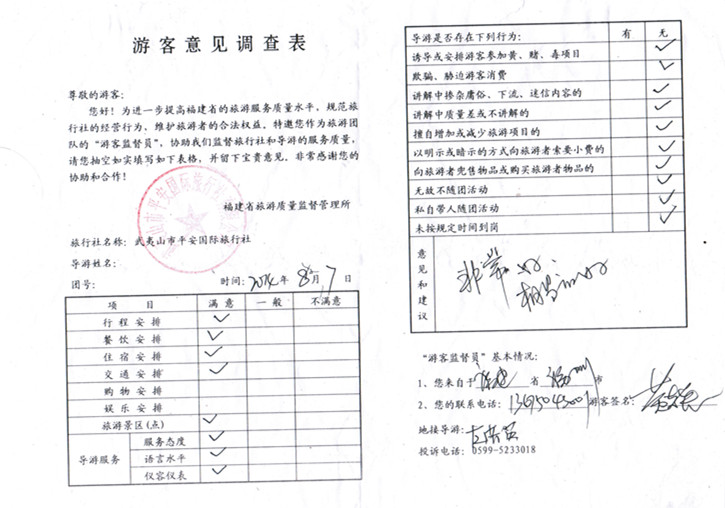 游客意见调查表
尊敬的游客：
您好！为进一步提高福建省的旅游服务质量水平，规范旅
行社的经营行为，维护旅游者的合法权益。特邀您作为旅游团
队的“游客监督员”，协助我们监督旅行社和导游的服务质量，
请您抽空如实填写如下表格，并留下宝贵意见。非常感谢您的
协助和合作！
福建省旅游质量监督管理所
旅行社名称：武夷山市平安国际旅行社
导游姓名：
团号： 时间：2014年 8月 7日
项 目 满 意 一 般 不满意
行 程 安 排 ✓
餐 饮 安 排 ✓
住 宿 安 排 ✓
交 通 安 排 ✓
购 物 安 排
娱 乐 安 排
旅游景区(点) ✓
导游服务 服务态度 ✓
语言水平 ✓
仪容仪表 ✓
导游是否存在下列行为： 有 无
诱导或安排游客参加黄、赌、毒项目 ✓
欺骗、胁迫游客消费 ✓
讲解中掺杂庸俗、下流、迷信内容的 ✓
讲解中质量差或不讲解的 ✓
擅自增加或减少旅游项目的 ✓
以明示或暗示的方式向旅游者索要小费的 ✓
向旅游者兜售物品或购买旅游者物品的 ✓
无故不随团活动 ✓
私自带人随团活动 ✓
未按规定时间到岗 ✓
意见和建议
非常好
“游客监督员”基本情况：
1、您来自于 省 市
2、您的联系电话： 游客签名：
地接导游：
投诉电话：0599-5233018